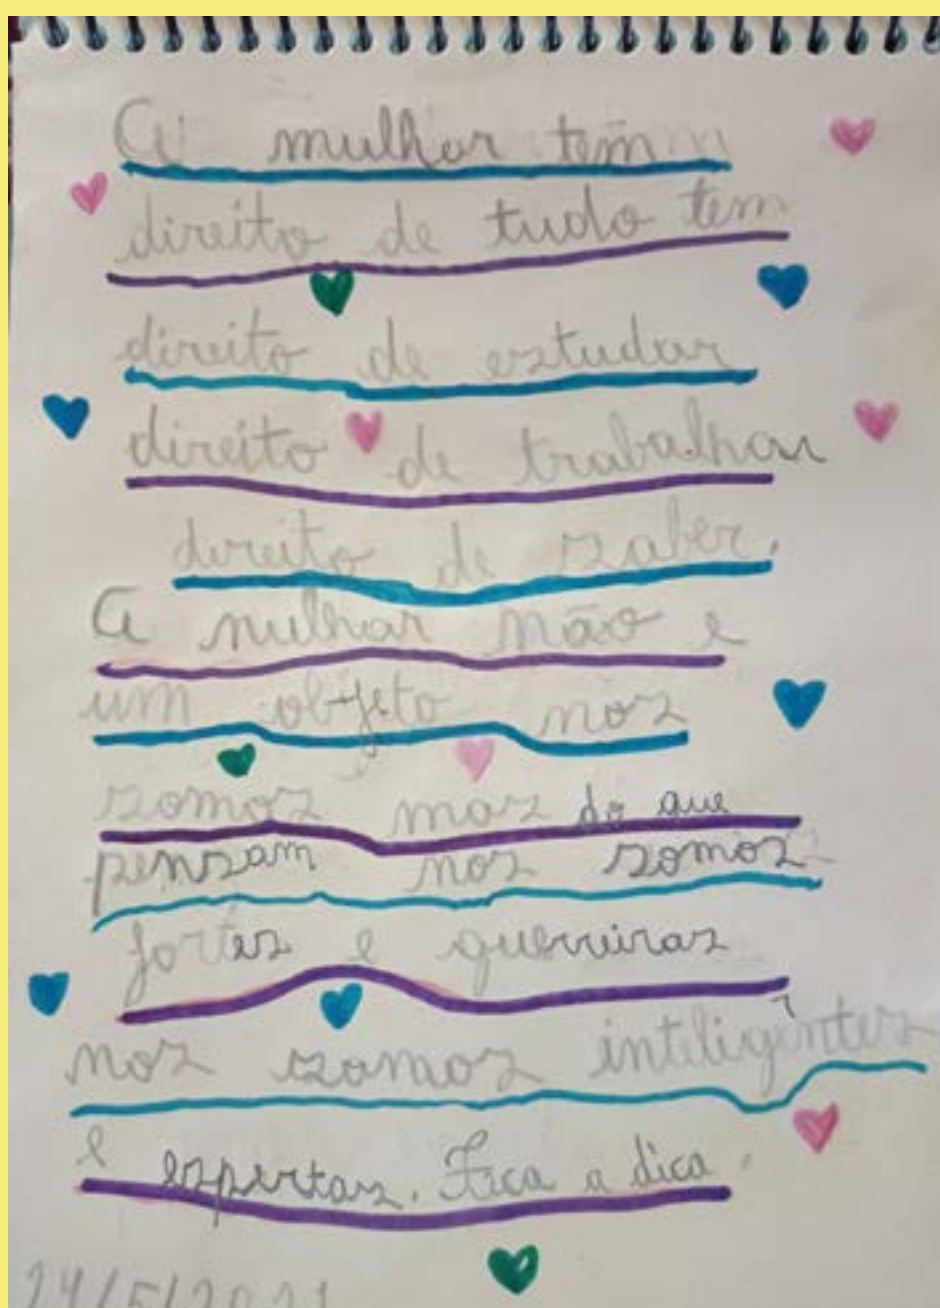 A mulhar tem
direito de tudo tem
direito de estudar
direito de trabalhar
direito de saber.
A mulhar não e
um objeto nos
somos mas do que
pensam nos somos
fortes e guerreiras
nos somos inteligêntes
e espertas. Fica a dica.
24/5/2021